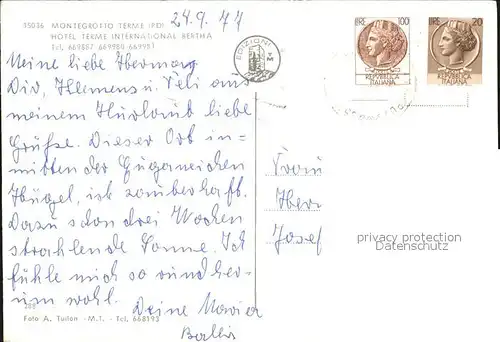 24.9.77
35036 MONTEGROTTO TERME (PD)
HOTEL TERME INTERNATIONAL BERTHA
Tel. 669887 669980
Meine liebe Ibermorg
Dir, Klemens u. Teli aus
meinem Hurlaub liebe
Grüße. Dieser Ort in-
mitten der Euganeichen
Hügel, ist zauberhaft.
Dazu schon drei Wochen
strahlende Sonne. Ich
fühle mich so rundher-
um wohl.
Deine Maria
Foto A. Tudon - M.T. - Tel. 668193
EDIZIONI
M T
LIRE 100
REPVBBLICA
ITALIANA
LIRE 20
REPVBBLICA
ITALIANA
Frau
Herr
Josef
privacy protection
Datenschutz